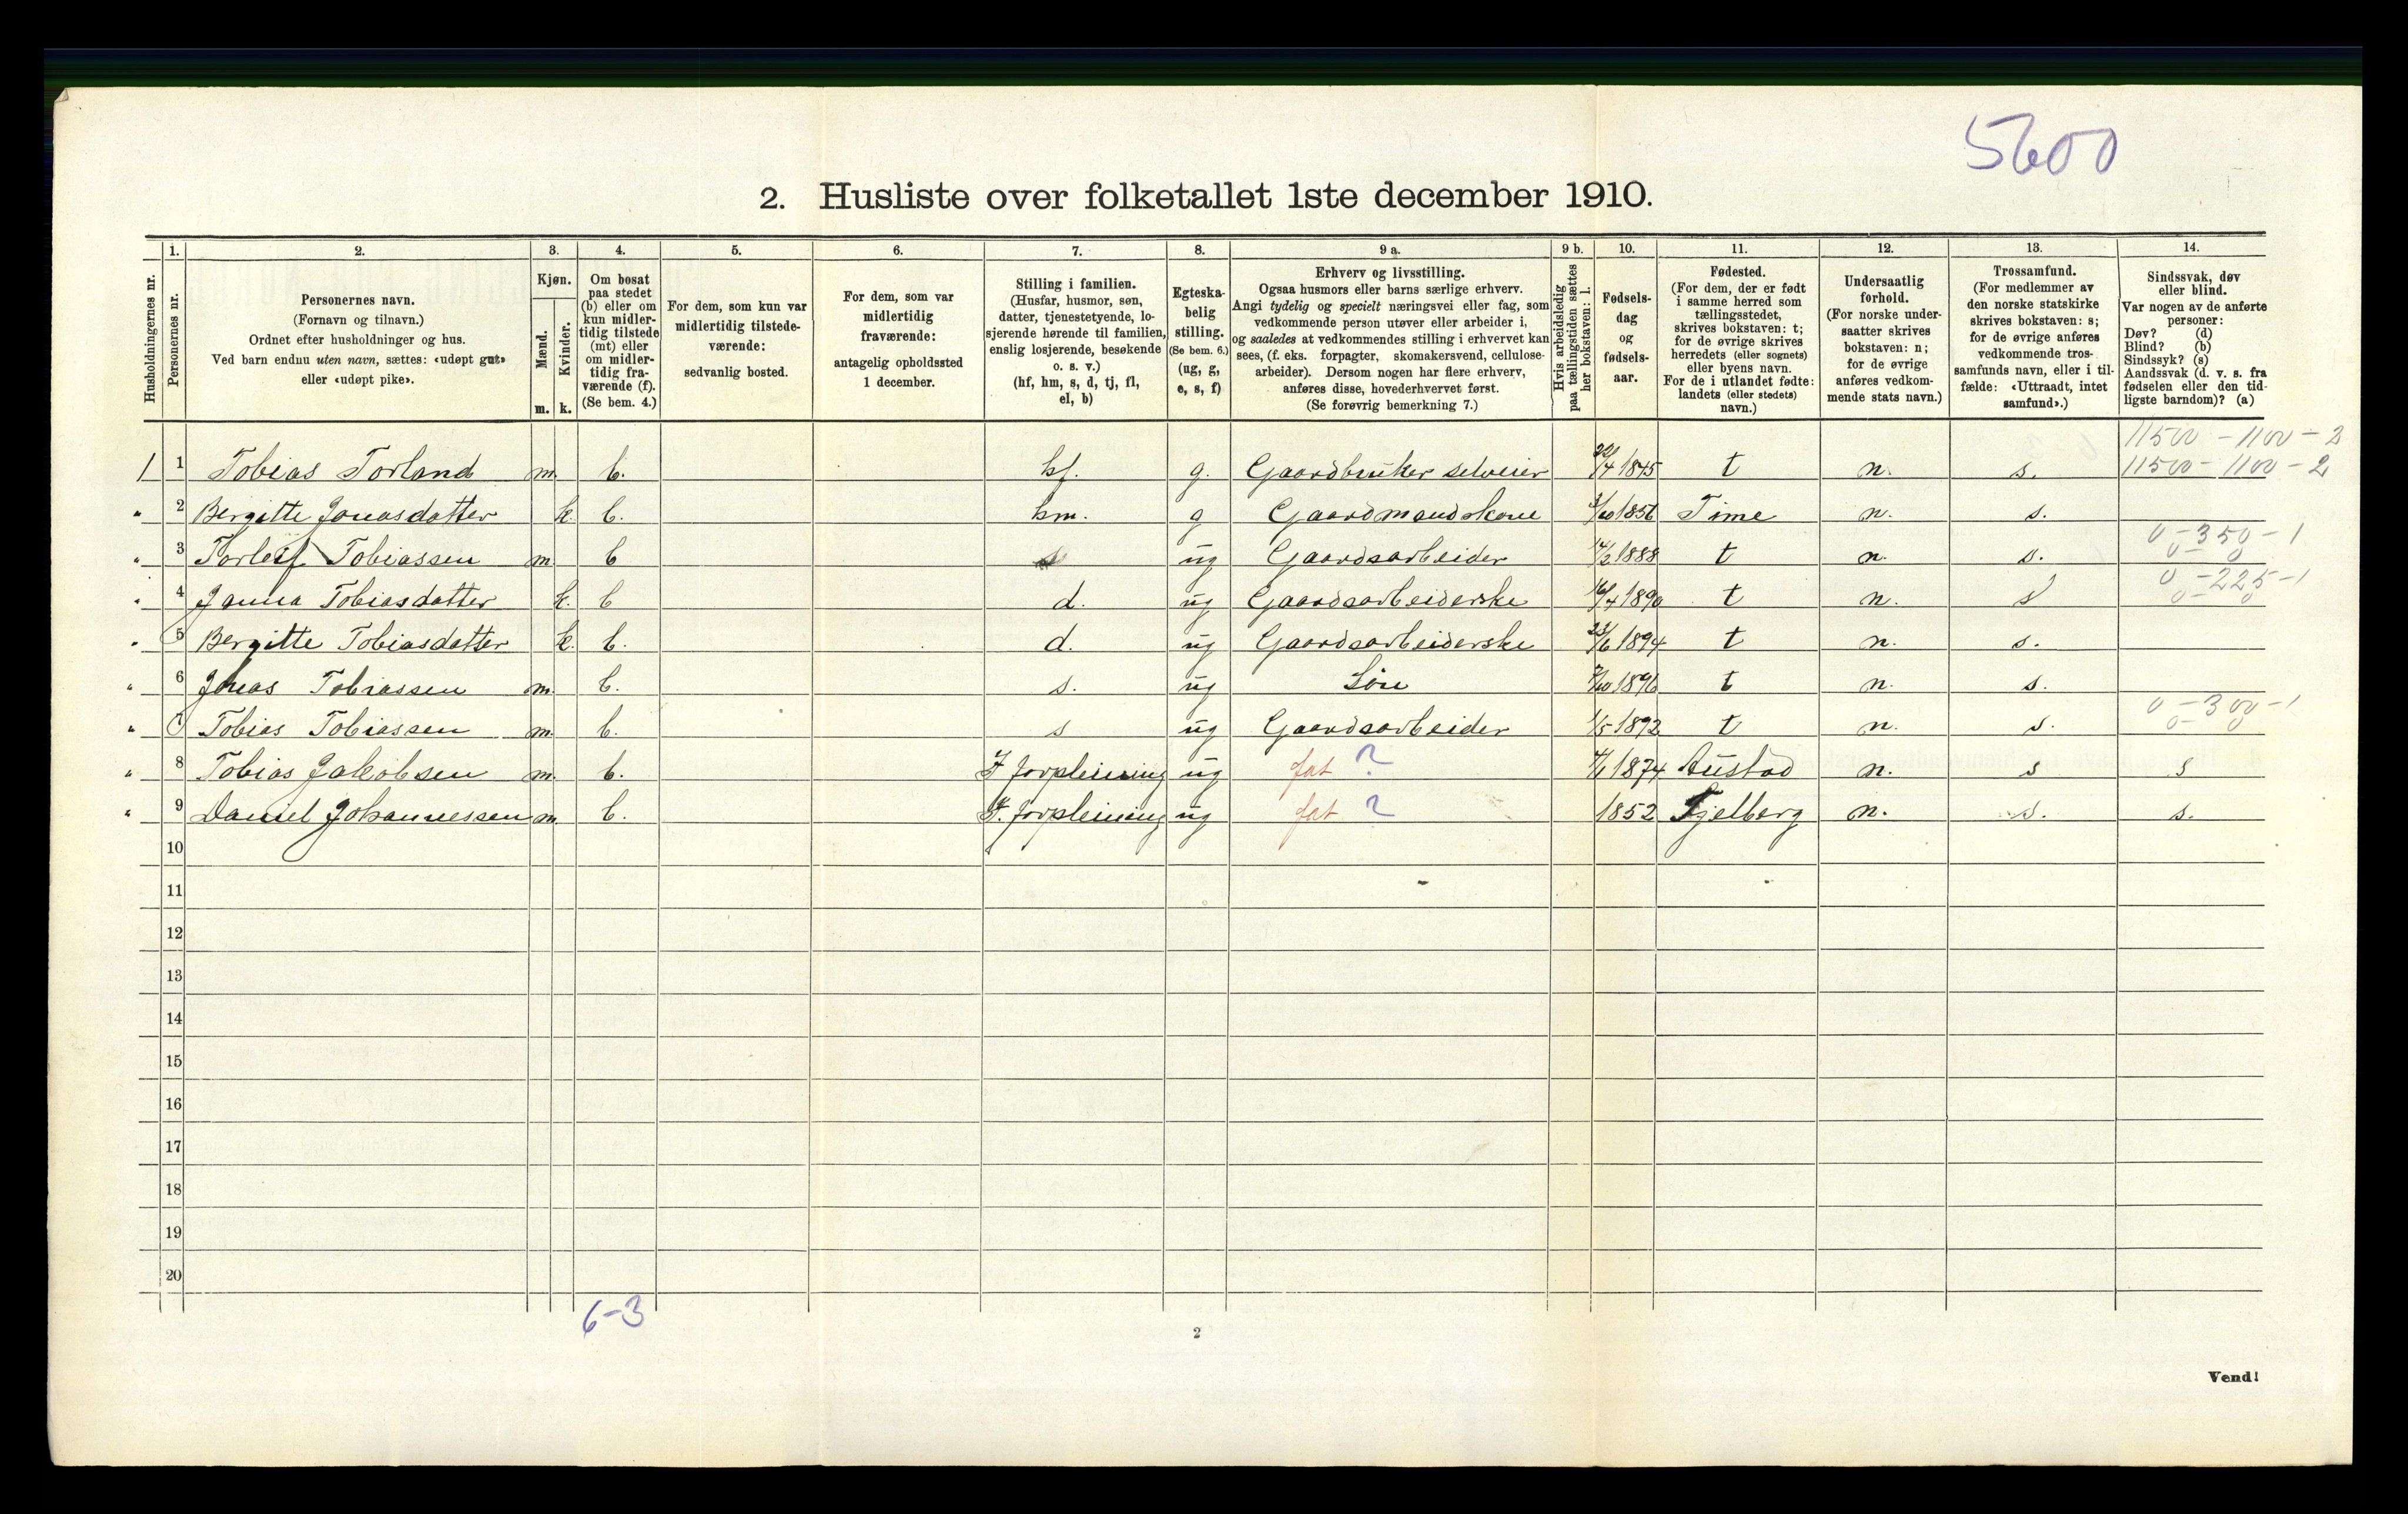 5600
2. Husliste over folketallet 1ste december 1910.
Husholdningernes nr.
1.
Personernes nr.
2.
Personernes navn.
(Fornavn og tilnavn.)
Ordnet efter husholdninger og hus.
Ved barn endnu uten navn, sættes: «udøpt gut»
eller «udøpt pike».
3.
Kjøn.
Mænd.
Kvinder.
m. k.
4.
Om bosat
paa stedet
(b) eller om
kun midler-
tidig tilstede
(mt) eller
om midler-
tidig fra-
værende (f).
(Se bem. 4.)
5.
For dem, som kun var
midlertidig tilstede-
værende:
sedvanlig bosted.
6.
For dem, som var
midlertidig
fraværende:
antagelig opholdssted
1 december.
7.
Stilling i familien.
(Husfar, husmor, søn,
datter, tjenestetyende, lo-
sjerende hørende til familien,
enslig losjerende, besøkende
o. s. v.)
(hf, hm, s, d, tj, fl,
el, b)
8.
Egteska-
belig
stilling.
(Se bem. 6.)
(ug, g,
e, s, f)
9 a.
Erhverv og livsstilling.
Ogsaa husmors eller barns særlige erhverv.
Angi tydelig og specielt næringsvei eller fag, som
vedkommende person utøver eller arbeider i,
og saaledes at vedkommendes stilling i erhvervet kan
sees, (f. eks. forpagter, skomakersvend, cellulose-
arbeider). Dersom nogen har flere erhverv,
anføres disse, hovederhvervet først.
(Se forøvrig bemerkning 7.)
9 b.
Hvis arbeidsledig
paa tællingstiden sættes
her bokstaven: l.
10.
Fødsels-
dag
og
fødsels-
aar.
11.
Fødested.
(For dem, der er født
i samme herred som
tællingsstedet,
skrives bokstaven: t;
for de øvrige skrives
herredets (eller sognets)
eller byens navn.
For de i utlandet fødte:
landets (eller stedets)
navn.)
12.
Undersaatlig
forhold.
(For norske under-
saatter skrives
bokstaven: n;
for de øvrige
anføres vedkom-
mende stats navn.)
13.
Trossamfund.
(For medlemmer av
den norske statskirke
skrives bokstaven: s;
for de øvrige anføres
vedkommende tros-
samfunds navn, eller i til-
fælde: «Uttraadt, intet
samfund».)
14.
Sindssvak, døv
eller blind.
Var nogen av de anførte
personer:
Døv? (d)
Blind? (b)
Sindssyk? (s)
Aandssvak (d. v. s. fra
fødselen eller den tid-
ligste barndom)? (a)
11500 - 1100 - 2
1 1 Tobias Torland m. b. hf. g. Gaardbruker selveier 22/4 1845 t n. s. 11500 - 1100 - 2
" 2 Bergitte Jonasdatter k. b. hm. g Gaardmandskone 3/10 1856 Time n. s.
0 - 350 - 1
" 3 Torleif Tobiassen m b s ug Gaardsarbeider 14/2 1888 t n. s. 0 - 0
0 - 225 - 1
" 4 Janna Tobiasdatter k. b d. ug Gaardsarbeiderske 16/4 1890 t n. s 0 - 0
" 5 Bergitte Tobiasdatter k. b. d. ug Gaardsarbeiderske 23/6 1894 t n. s.
" 6 Jonas Tobiassen m. b. s. ug Søn 7/10 1896 t n. s.
0 - 300 - 1
" 7 Tobias Tobiassen m. b. s ug Gaardsarbeider 1/5 1892 t n. s. 0 - 0
" 8 Tobias Jakobsen m. b. I forpleining ug fat ? 1874 Austad n. s s
" 9 Daniel Johannessen m. b. I. forpleining ug fat ? 1852 Fjelberg n. s. s.
10
11
12
13
14
15
16
17
18
19
20
6-3
2
Vend!